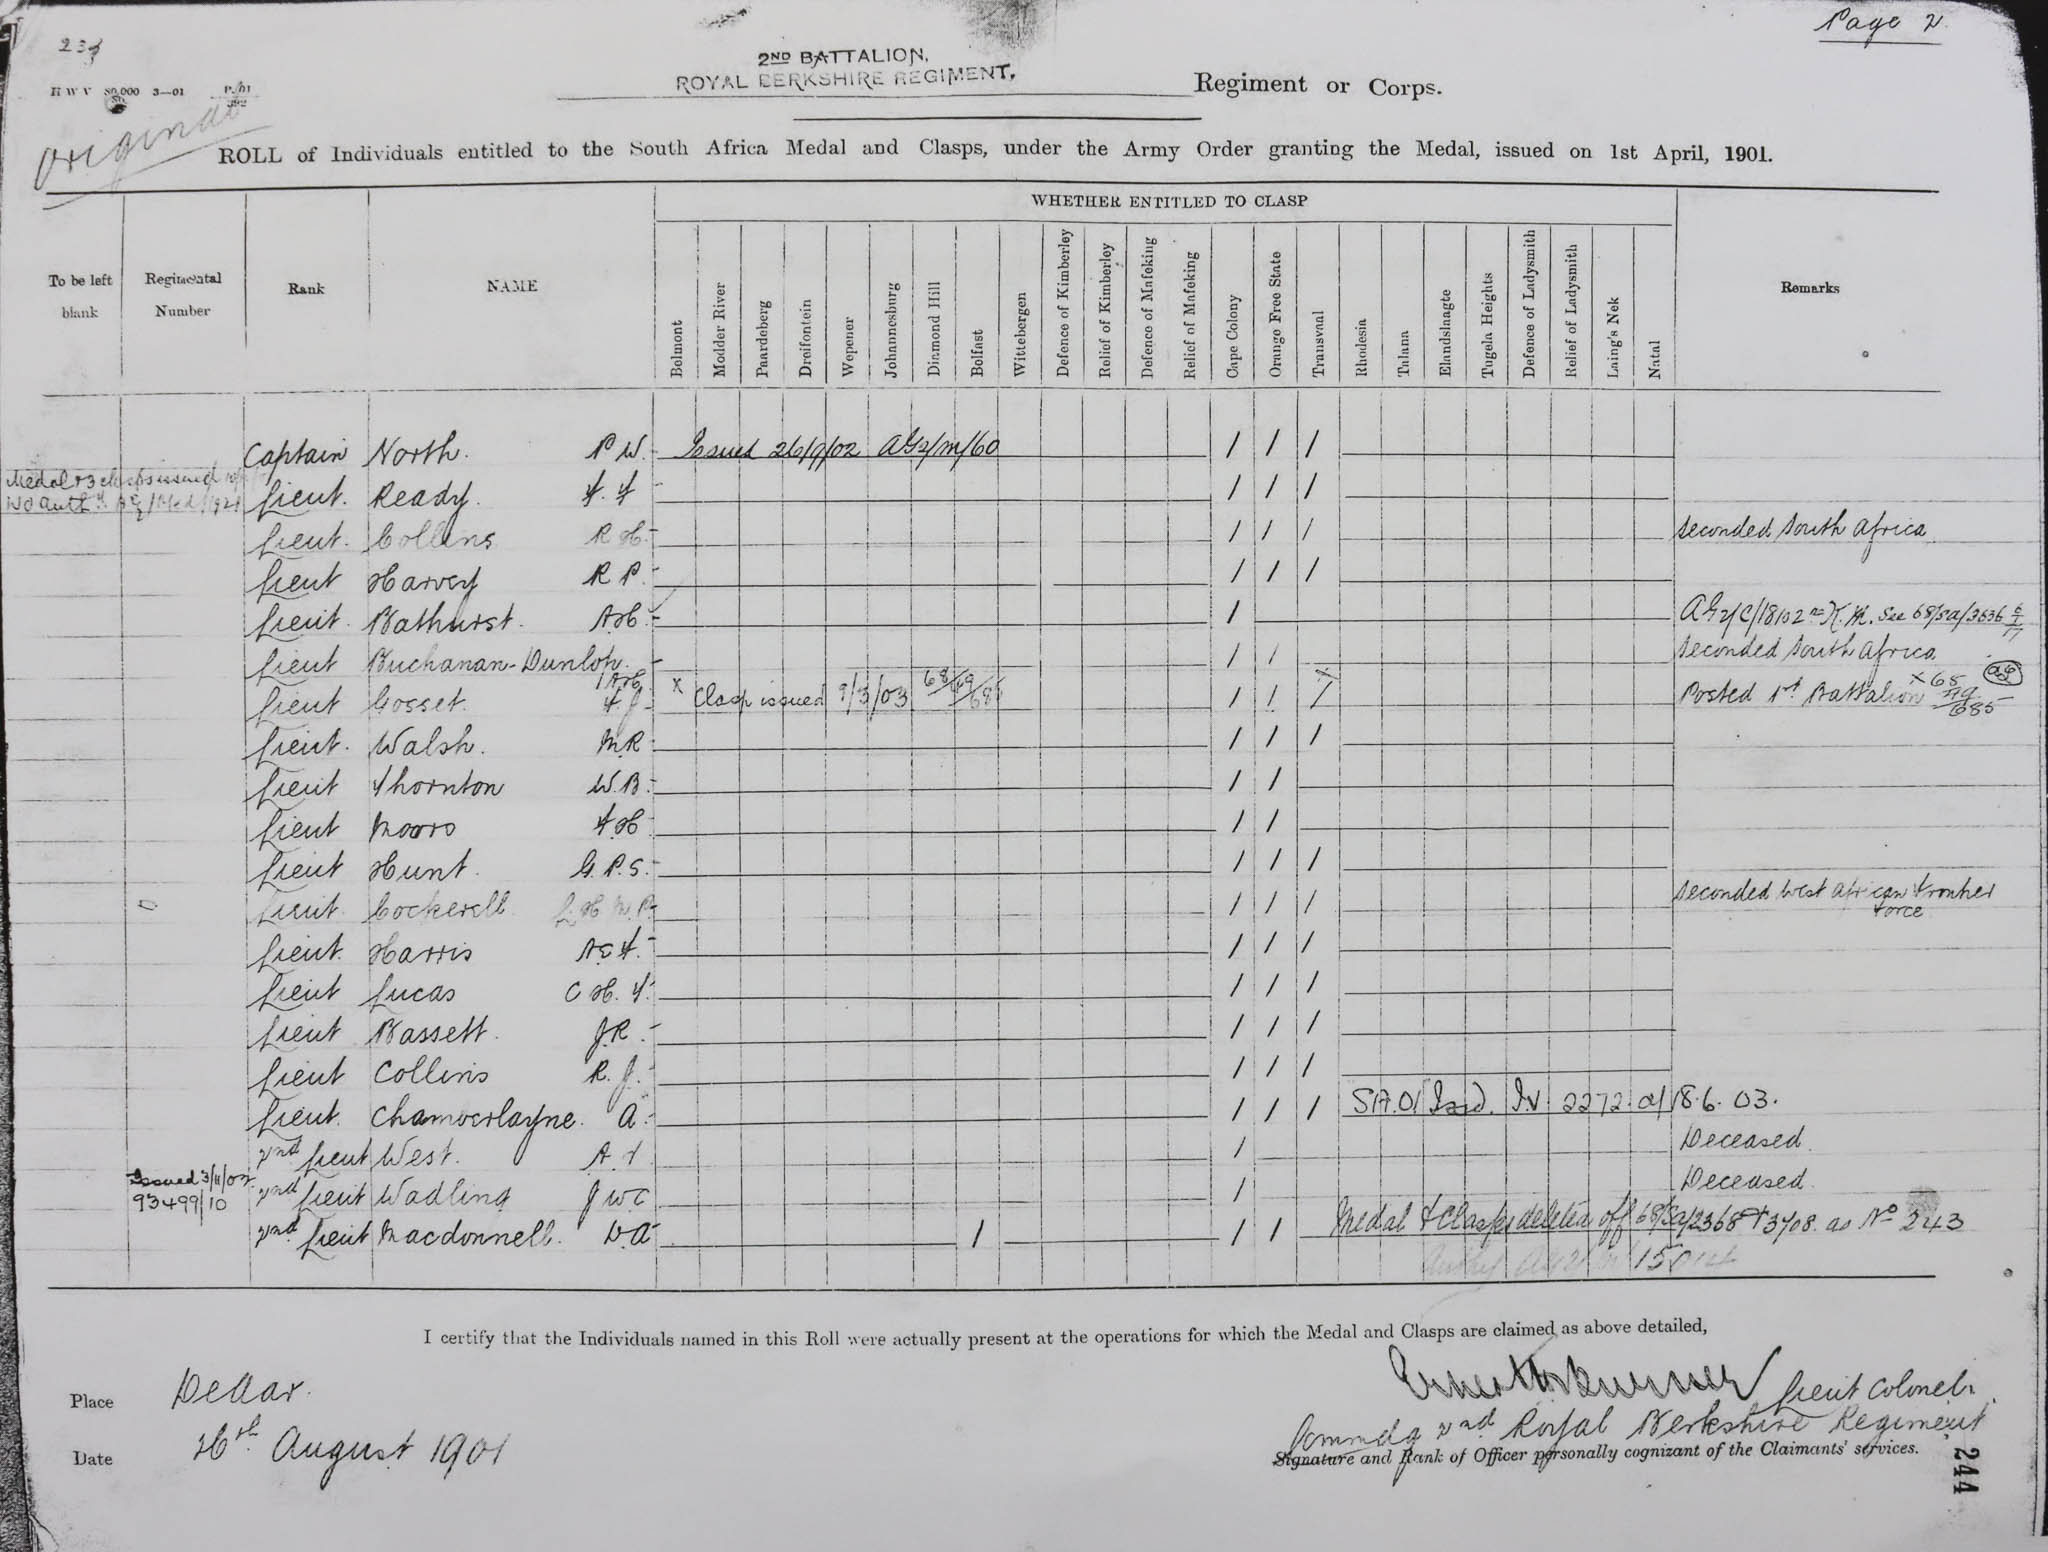 Page 2
2ND BATTALION,
ROYAL BERKSHIRE REGIMENT.
Regiment or Corps.
H W V 80,000 3—01
Original
ROLL of Individuals entitled to the South Africa Medal and Clasps, under the Army Order granting the Medal, issued on 1st April, 1901.
WHETHER ENTITLED TO CLASP
To be left blank
Regimental Number
Rank
NAME
Belmont
Modder River
Paardeberg
Dreifontein
Wepener
Johannesburg
Diamond Hill
Belfast
Wittebergen
Defence of Kimberley
Relief of Kimberley
Defence of Mafeking
Relief of Mafeking
Cape Colony
Orange Free State
Transvaal
Rhodesia
Talana
Elandslaagte
Tugela Heights
Defence of Ladysmith
Relief of Ladysmith
Laing's Nek
Natal
Remarks
Captain North. P W. Issued 26/9/02 AG2/M/60 / / /
Medal & 3 clasps issued
Lieut. Ready. F. F / / /
Lieut. Collins R H. / / / Seconded South Africa
Lieut Harvey R P. / / /
Lieut. Bathurst. A H. / See 68/SA/3536
Lieut Buchanan-Dunlop. / / Seconded South Africa
Lieut Gosset. F. J X Clasp issued 9/3/03 68/49/685 / / / X Posted 1st Battalion X 68/49/685
Lieut. Walsh. M R / / /
Lieut Thornton W. B. / /
Lieut Moore F H / /
Lieut Hunt. G. P. S. / / /
Lieut. Cockerell L. H. M. P. / / / Seconded West African Frontier Force
Lieut. Harris A E F. / / /
Lieut Lucas C H. F. / / /
Lieut Bassett. J. R. / / /
Lieut Collins R. J. / / /
Lieut. Chamberlayne. A. / / / SA.01 Issd. I.V. 2272 18.6.03.
2nd Lieut West. A. T / Deceased.
Issued 3/11/02
93499/10
2nd Lieut Wadling J W C / Deceased.
2nd Lieut Macdonnell. D. A / / / Medal & Clasps deleted off 68/SA/2368 & 3708. as No 243
I certify that the Individuals named in this Roll were actually present at the operations for which the Medal and Clasps are claimed as above detailed,
Place DeAar.
Lieut Colonel.
Commdg 2nd Royal Berkshire Regiment
Date 26th August 1901
Signature and Rank of Officer personally cognizant of the Claimants' services.
244